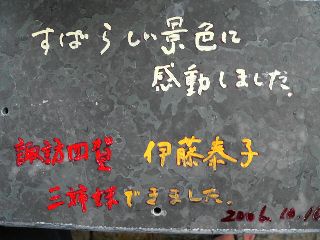 すばらしい景色に
感動しました。
諏訪四賀 伊藤泰子
三姉妹できました。
2006.10.16